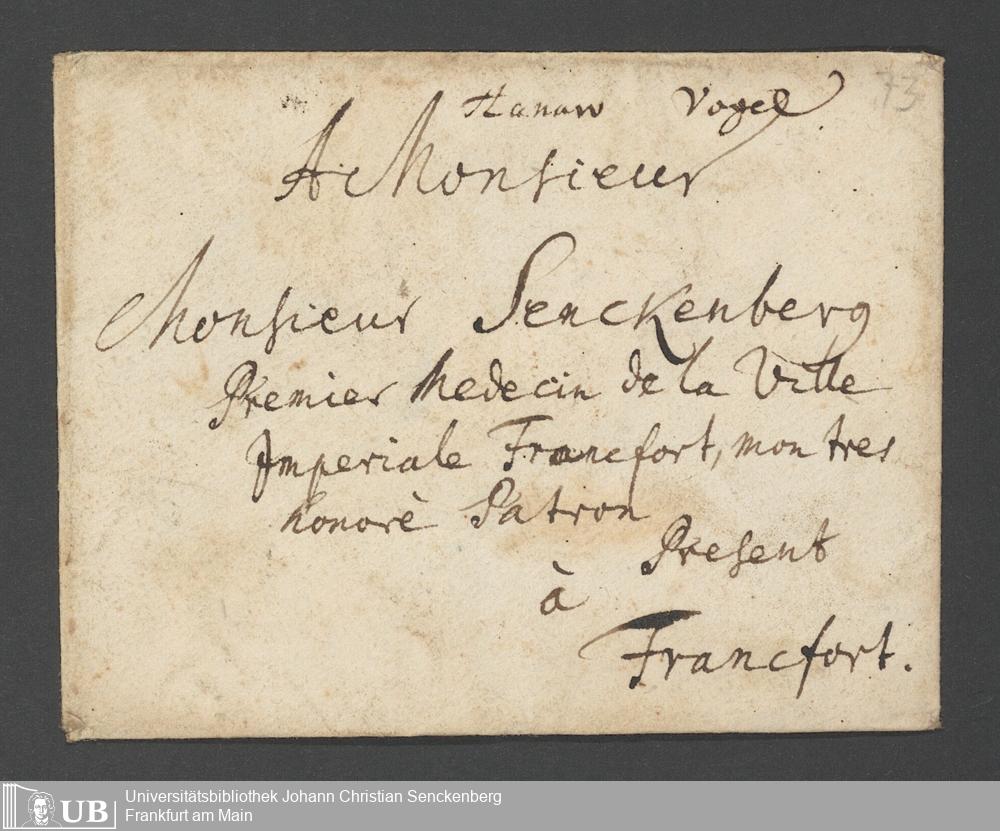 Hanaw Vogel
73
A Monsieur
Monsieur Senckenberg
Premier Medecin de la Ville
Imperiale Francfort, mon tres
honorè Patron
Present
à
Francfort.
UB
Universitätsbibliothek Johann Christian Senckenberg
Frankfurt am Main